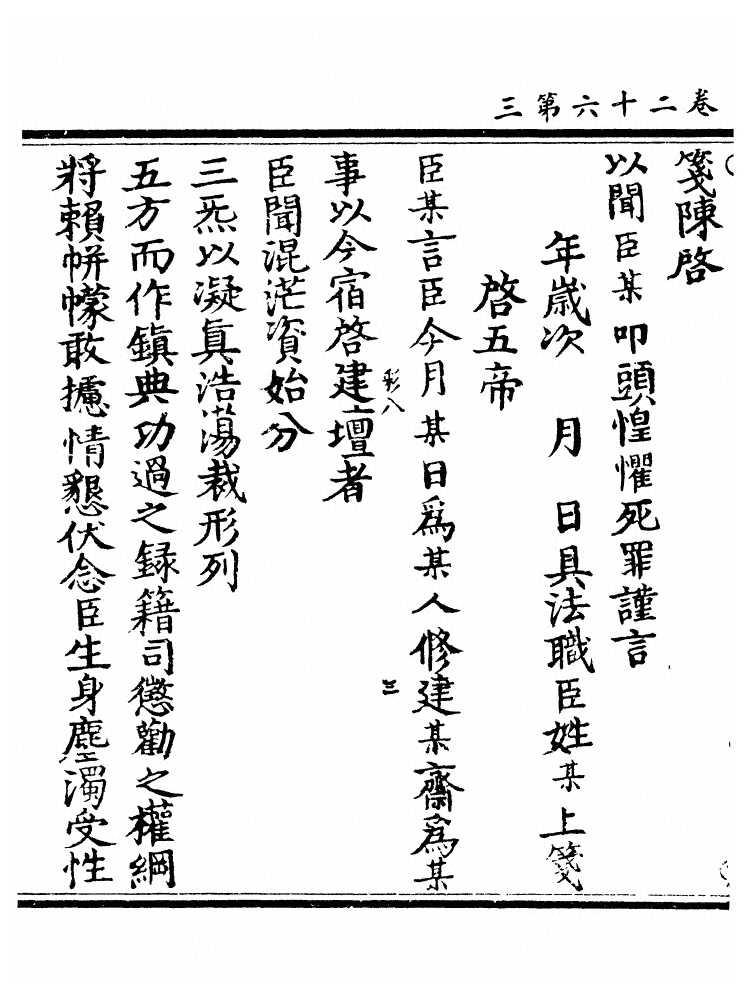 卷二十六第三
箋陳啓
以聞臣某叩頭惶懼死罪謹言
年歲次　月　日具法職臣姓某上箋
啓五帝
臣某言臣今月某日爲某人修建某齋爲某
彩八
三
事以今宿啓建壇者
臣聞混茫資始分
三炁以凝眞浩蕩裁形列
五方而作鎭典功過之録籍司懲勸之權綱
將賴帡幪敢攄情懇伏念臣生身塵濁受性